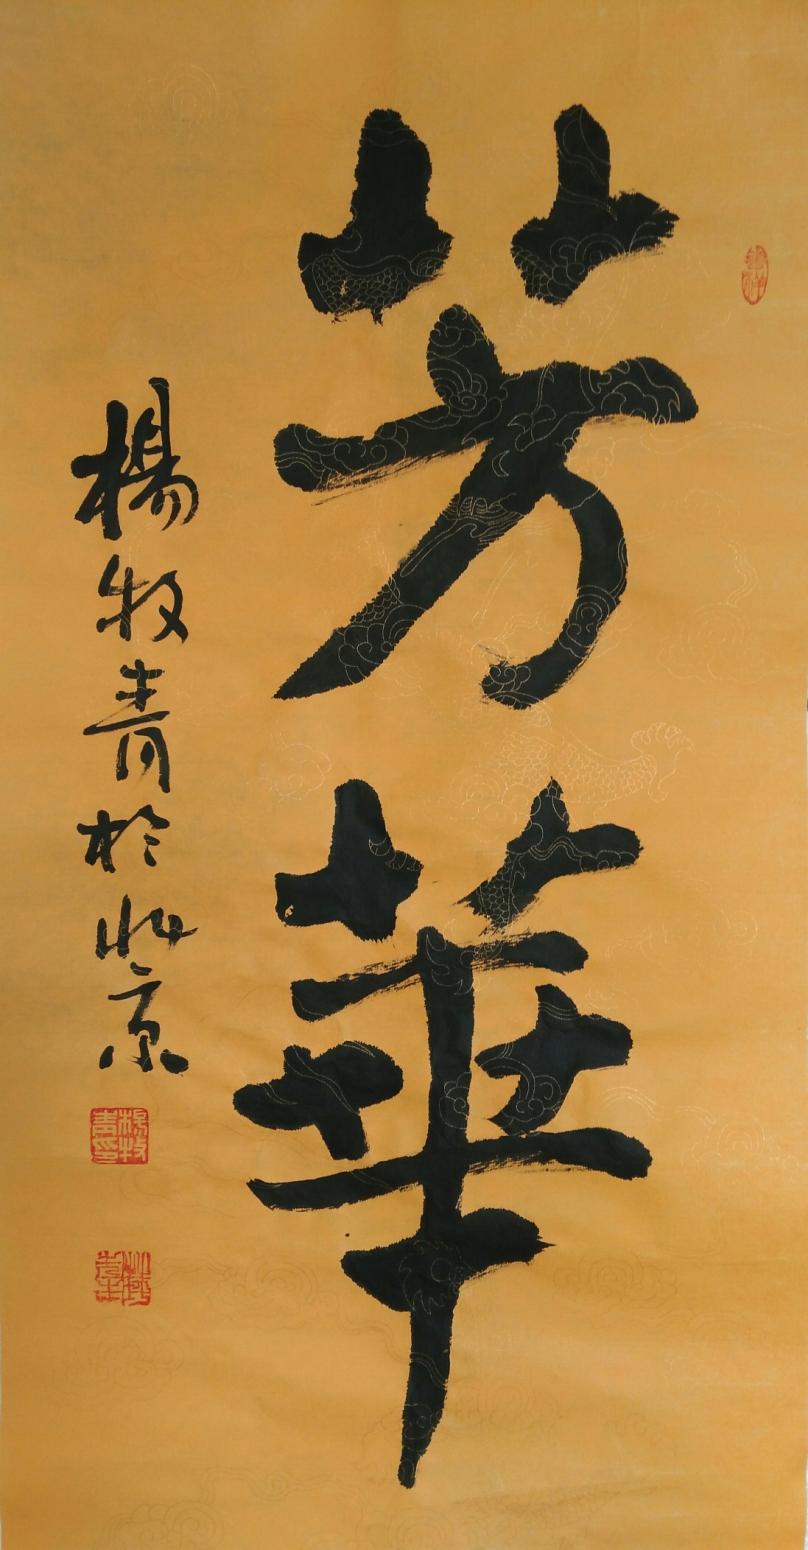 芳華
楊牧青於北京
楊牧青印